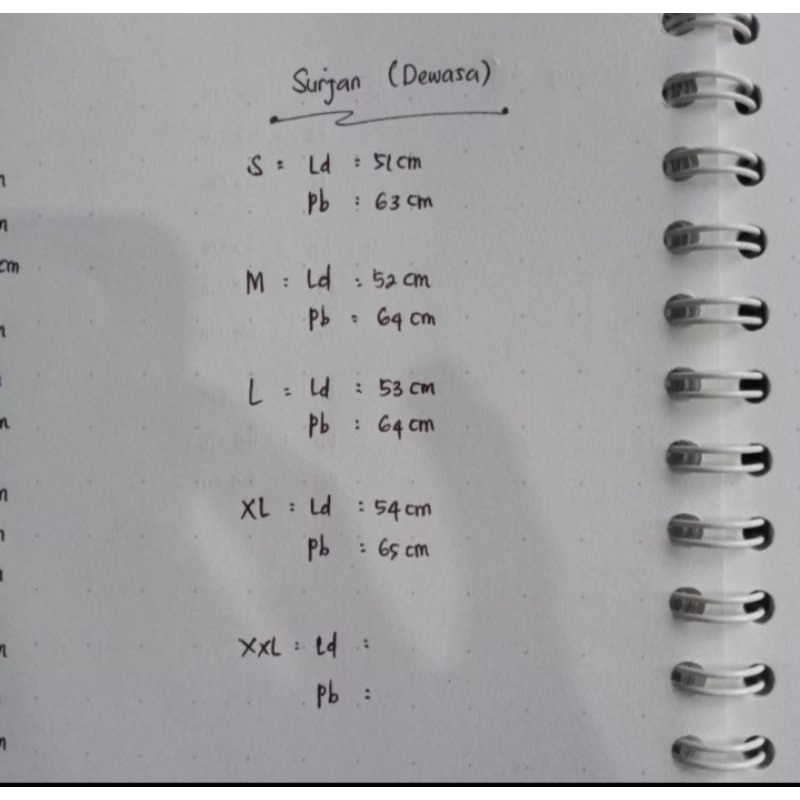 Surjan (Dewasa)
S = Ld : 51 cm
Pb : 63 cm
M : Ld : 52 cm
Pb : 64 cm
L = Ld : 53 cm
Pb : 64 cm
XL : Ld : 54 cm
Pb : 65 cm
XXL : Ld :
Pb :
cm